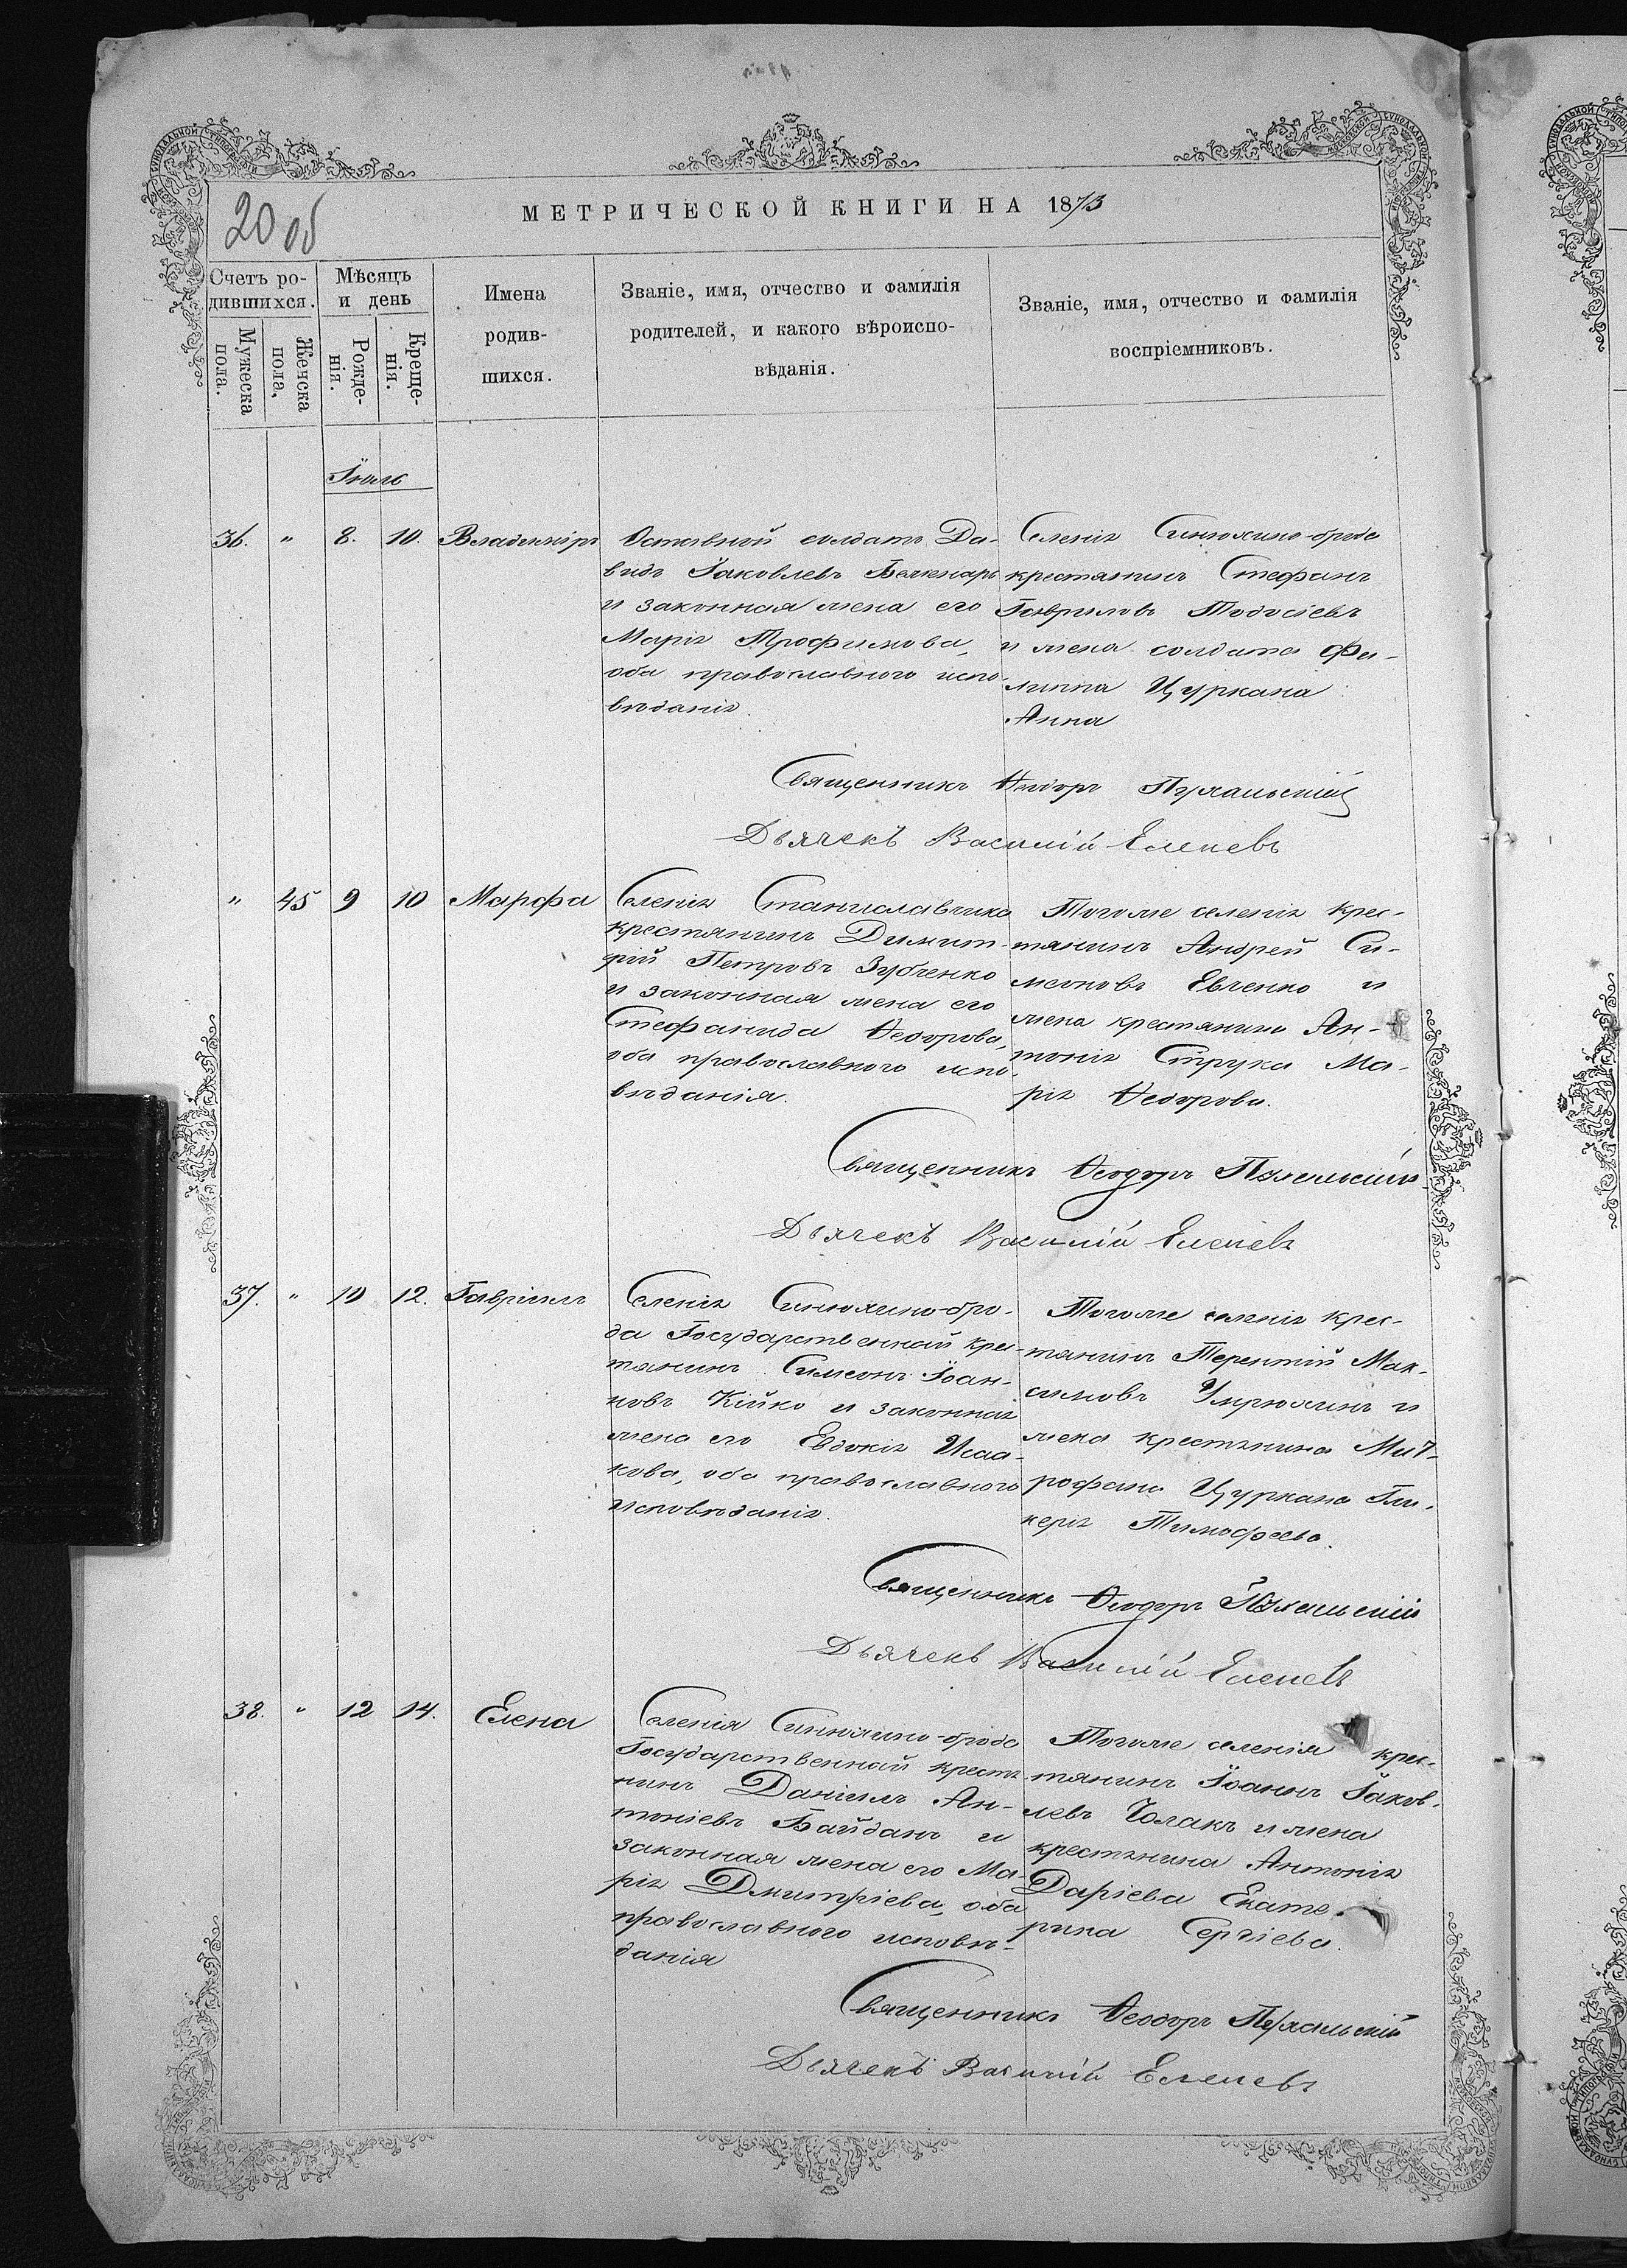 20 об
МЕТРИЧЕСКОЙ КНИГИ НА 1873
Счетъ ро-
дившихся.
Мужеска
пола.
Женска
пола.
Мѣсяцъ
и день
Рожде-
нія.
Креще-
нія.
Имена
родив-
шихся.
Званіе, имя, отчество и фамилія
родителей, и какого вѣроиспо-
вѣданія.
Званіе, имя, отчество и фамилія
воспріемниковъ.
Іюль
36. " 8. 10. Владиміръ
Оставный солдатъ Да-
видъ Іаковлевъ
и законная жена его
Марія Трофимова,
оба православного испо-
вѣданія
Селенія Синюхино-брода
крестянинъ Стефанъ
Гавриловъ Тодосіевъ
и жена солдата Фи-
липпа Цуркана
Анна
Священникъ Ѳеодоръ Пухальскій
Дьячекъ Василій Еленевъ
" 45 9 10 Марфа
Селенія Станиславчика
крестянинъ Димит-
рій Петровъ Зубченко
и законная жена его
Стефанида Ѳеодорова,
оба православного испо-
вѣданія.
Тогоже селенія крес-
тянинъ Андрей Си-
меоновъ Евченко и
жена крестянина Ан-
тонія Струка Ма-
рія Ѳеодорова.
Священникъ Ѳеодоръ Пухальскій
Дьячекъ Василій Еленевъ
37. " 10 12. Гавріилъ
Селенія Синюхино-бро-
да Государственный крес-
тянинъ Симеонъ Іоан-
новъ Кійко и законная
жена его Евдокія Исаа-
кова, оба православного
исповѣданія.
Тогоже селенія крес-
тянинъ Терентій Мак-
симовъ и
жена крестянина Мит-
рофана Цуркана Гли-
керія Тимофеева.
Священникъ Ѳеодоръ Пухальскій
Дьячекъ Василій Еленевъ
38. " 12 14. Елена
Селенія Синюхино-брода
Государственный крестя-
нинъ Даніилъ Ан-
тоніевъ Байданъ и
законная жена его Ма-
рія Дмитріева, оба
православного исповѣ-
данія
Тогоже селенія крес-
тянинъ Іоаннъ Іаков-
левъ Чолакъ и жена
крестянина Антонія
Даріева Екате-
рина Сергіева.
Священникъ Ѳеодоръ Пухальскій
Дьячекъ Василій Еленевъ